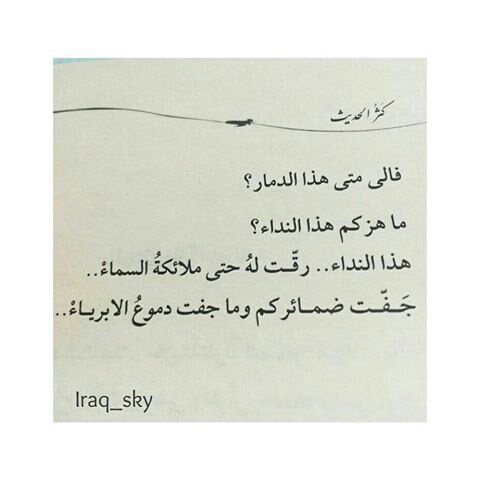 كَثُرَ الحديث
فالى متى هذا الدمار؟
ما هزكم هذا النداء؟
هذا النداء.. رقّت لهُ حتى ملائكةُ السماءْ..
جَفّت ضمائركم وما جفت دموعُ الابرياءْ..
Iraq_sky